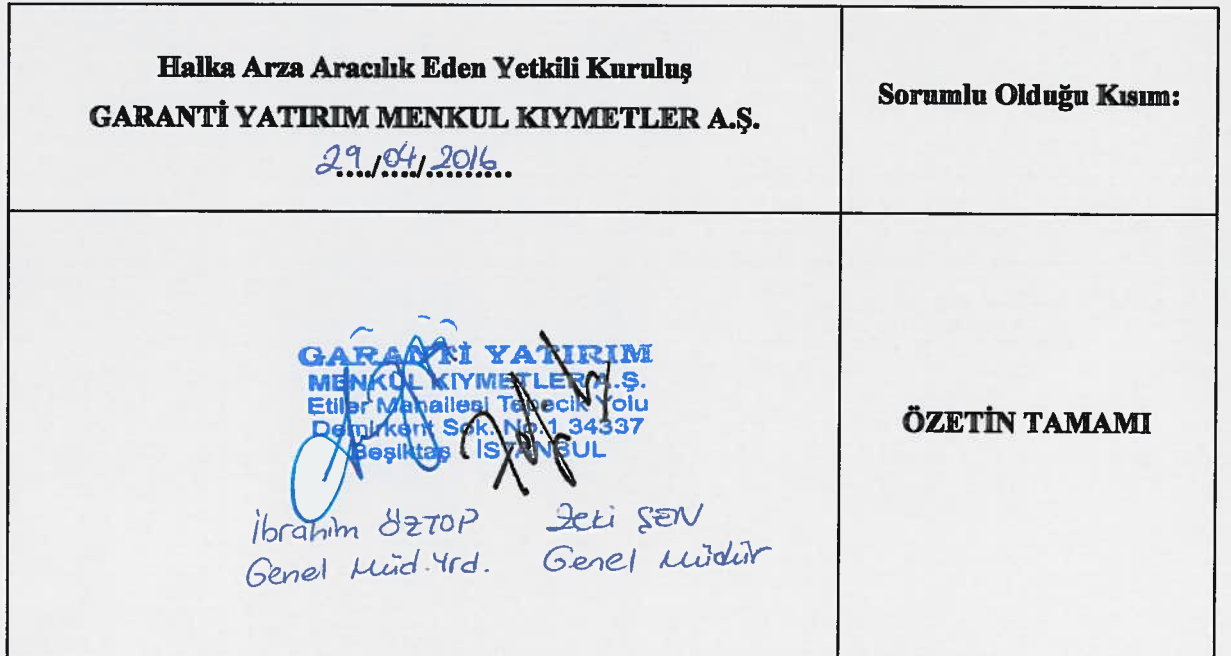 Halka Arza Aracılık Eden Yetkili Kuruluş
GARANTİ YATIRIM MENKUL KIYMETLER A.Ş.
29/04/2016
Sorumlu Olduğu Kısım:
GARANTİ YATIRIM
MENKUL KIYMETLER A.Ş.
Etiler Mahallesi Tepecik Yolu
Demirkent Sok. No.1 34337
Beşiktaş İSTANBUL
İbrahim ÖZTOP Zeki ŞEN
Genel Müd.Yrd. Genel Müdür
ÖZETİN TAMAMI